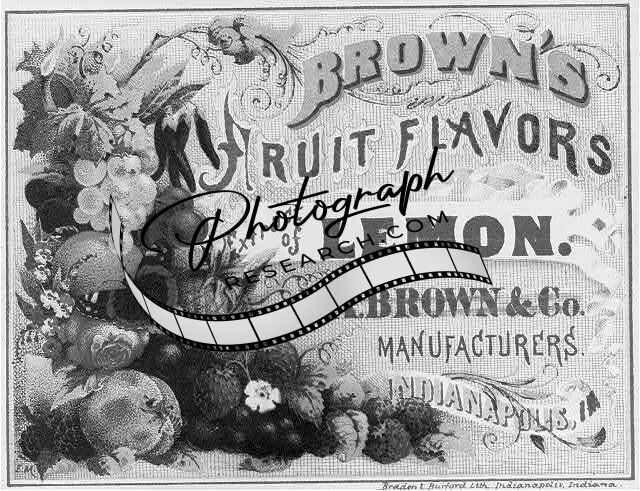 BROWN'S
FRUIT FLAVORS
EXT. OF LEMON.
Photograph
RESEARCH.COM
BROWN & Co.
MANUFACTURERS.
INDIANAPOLIS, IA
Braden & Burford Lith. Indianapolis, Indiana.